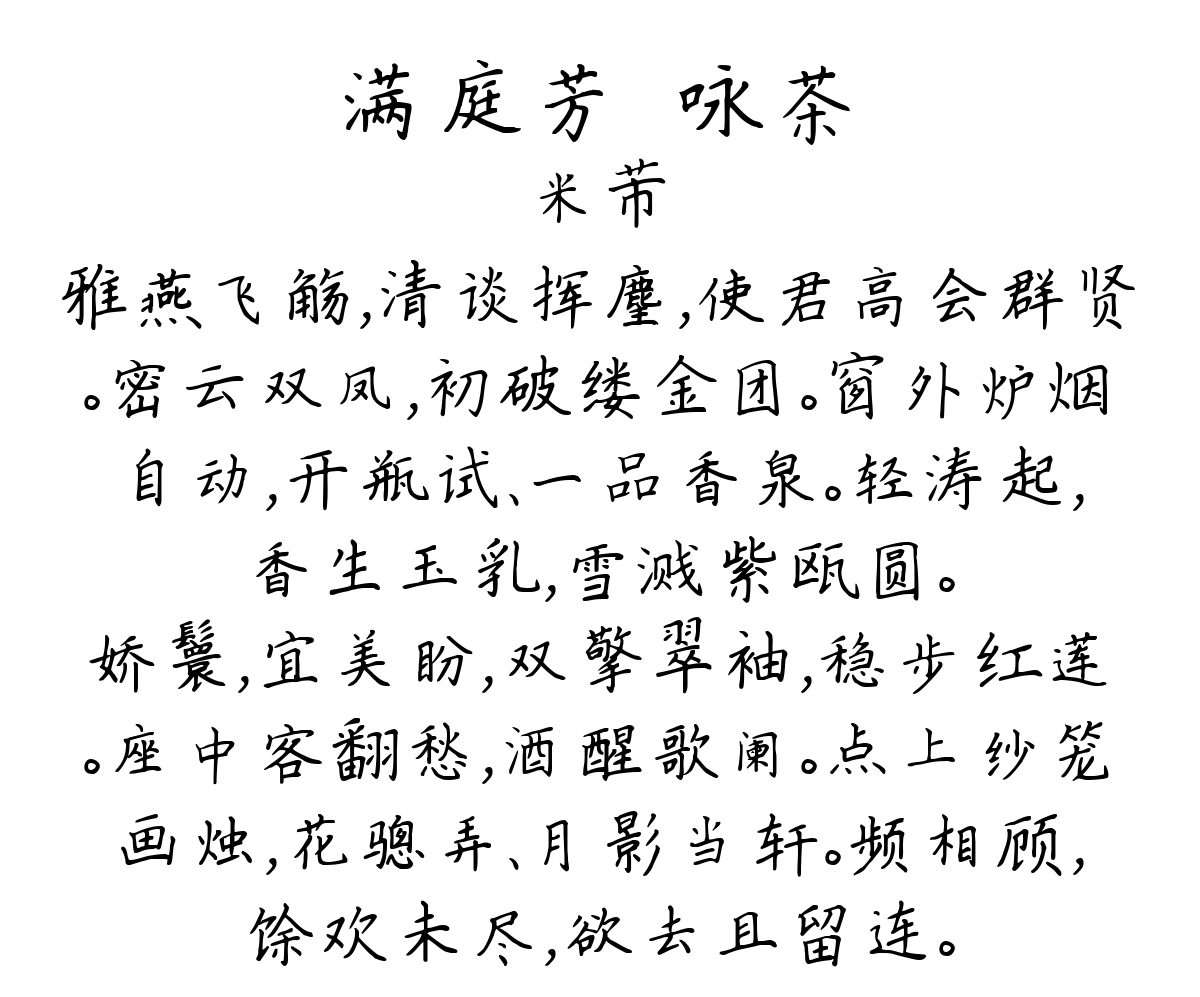 满庭芳 咏茶
米芾
雅燕飞觞,清谈挥麈,使君高会群贤
。密云双凤,初破缕金团。窗外炉烟
自动,开瓶试、一品香泉。轻涛起,
香生玉乳,雪溅紫瓯圆。
娇鬟,宜美盼,双擎翠袖,稳步红莲
。座中客翻愁,酒醒歌阑。点上纱笼
画烛,花骢弄、月影当轩。频相顾,
馀欢未尽,欲去且留连。